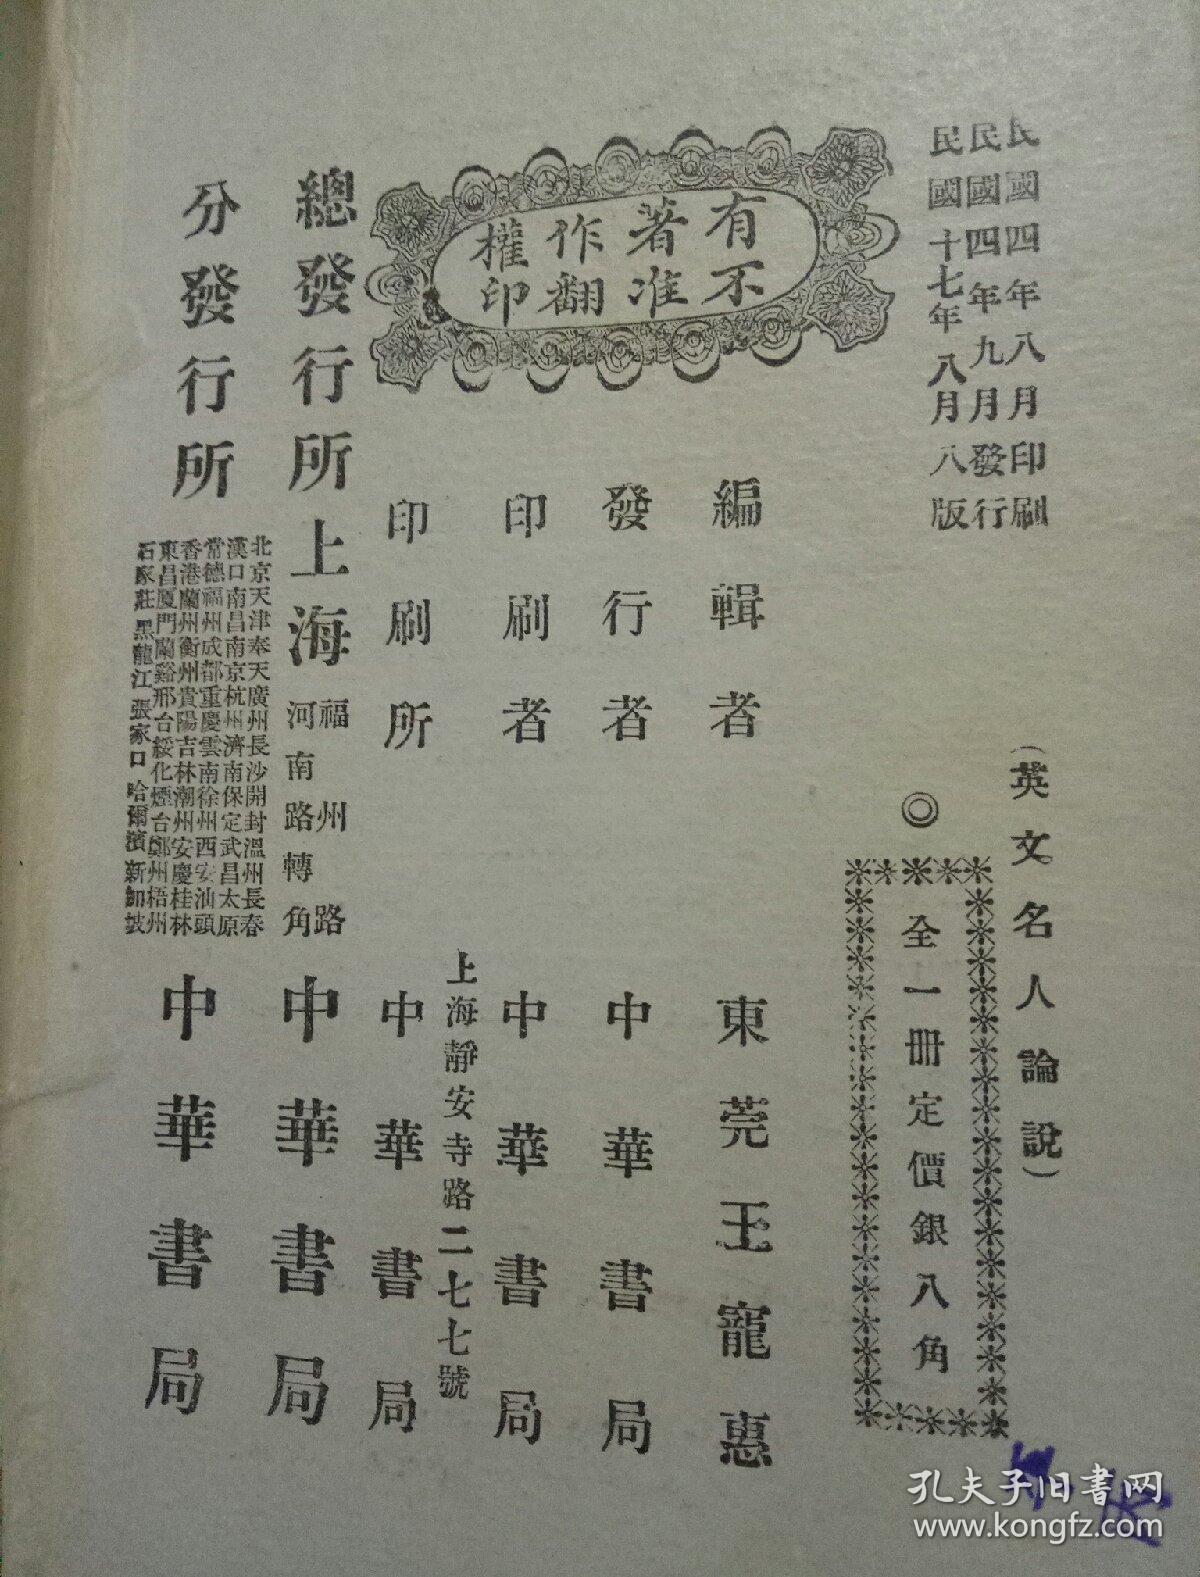 民國四年八月印刷
民國四年九月發行
民國十七年八月八版
(英文名人論說)
◎全一冊定價銀八角
有不
著准
作翻
權印
編輯者 東莞王寵惠
發行者 中華書局
印刷者 中華書局
上海靜安寺路二七七號
印刷所 中華書局
總發行所 上海福州路河南路轉角 中華書局
分發行所
北京天津奉天廣州長沙開封溫州長春
漢口南昌南京杭州濟南保定武昌太原
常德福州成都重慶雲南徐州西安汕頭
香港蘭州衡州貴陽吉林潮州安慶桂林
東昌廈門蘭谿邢台綏化煙台鄭州梧州
石家莊 黑龍江 張家口 哈爾濱 新加坡
中華書局
孔夫子旧书网
www.kongfz.com